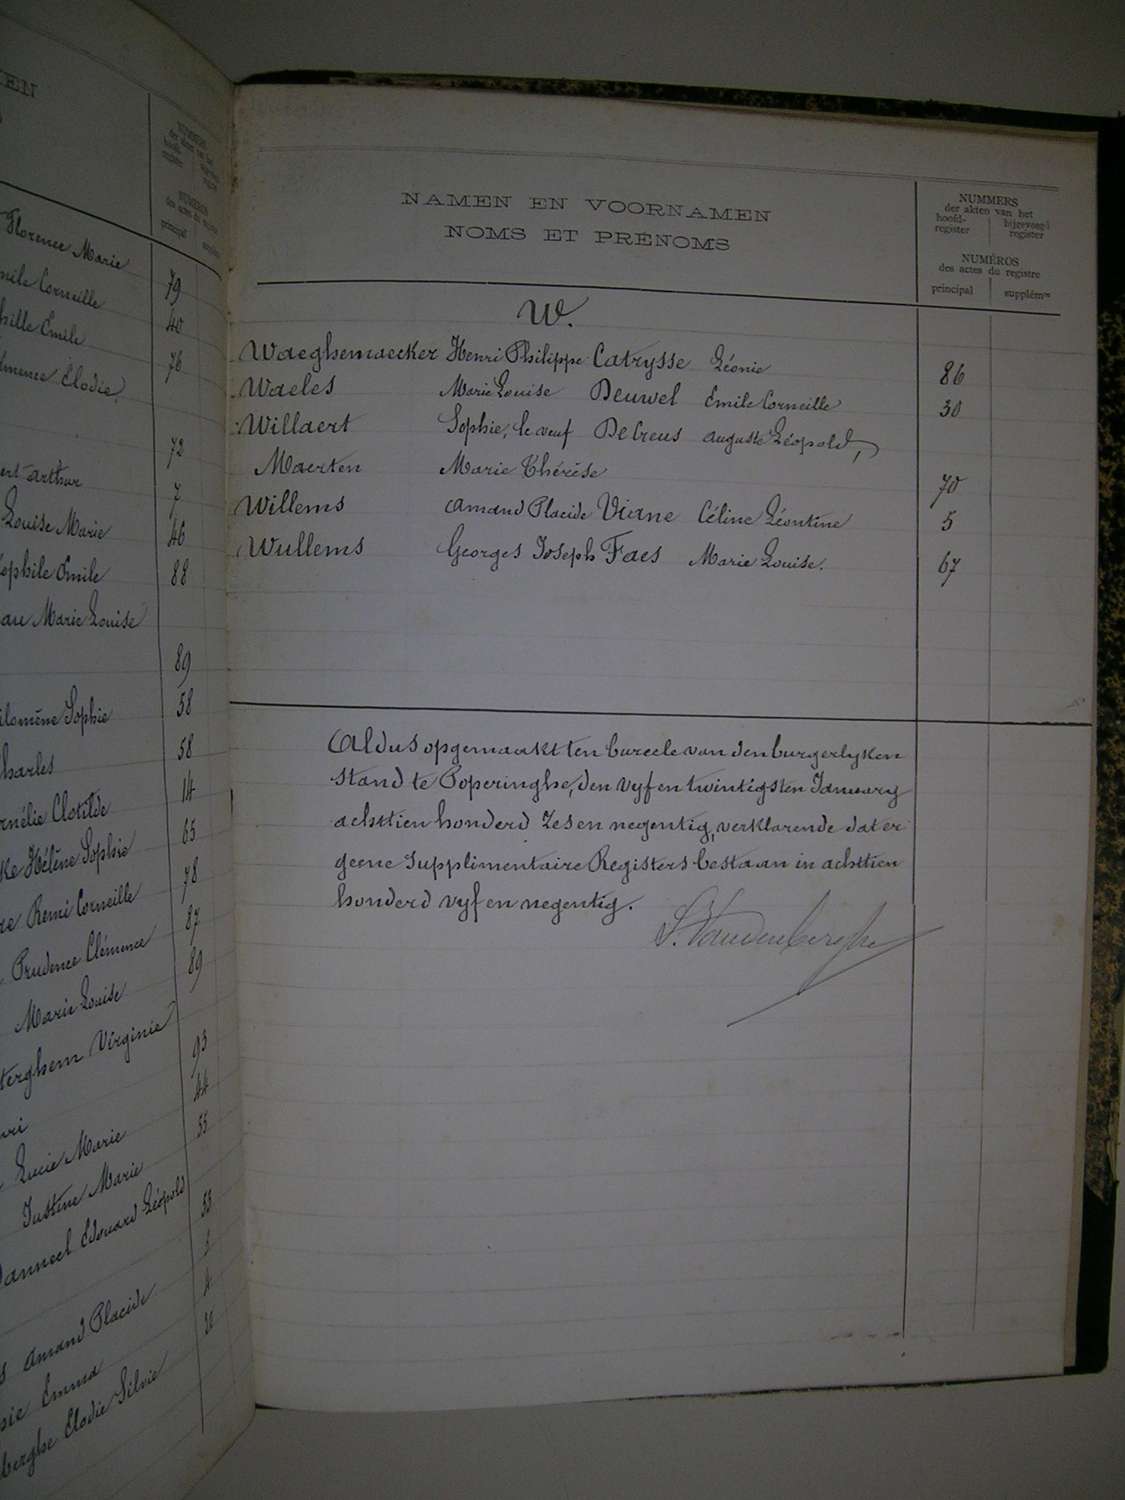 EN
NUMMERS
der akten van het
hoofd-
register
NUMÉROS
des actes du registre
principal
Florence Marie 79
Emile Corneille 40
Emile 76
Clémence Elodie
72
Arthur 7
Louise Marie 46
Théophile Emile 88
Marie Louise
89
Philomène Sophie 58
Charles 58
Cornélie Clotilde 14
Hélène Sophie 65
Remi Corneille 78
Prudence Clémence 87
Marie Louise 89
Virginie
93
Lucie Marie 44
Justine Marie 55
Edouard Léopold
53
Amand Placide
Emma 4
Elodie Silvie
NAMEN EN VOORNAMEN
NOMS ET PRÉNOMS
NUMMERS
der akten van het
hoofd-
register
bijgevoegd
register
NUMÉROS
des actes du registre
principal supplém<sup>re</sup>
W.
Waeghemaecker Henri Philippe Catrysse Léonie 86
Waeles Marie Louise Deuwel Emile Corneille 30
Willaert Sophie, le veuf Decreus Auguste Léopold,
Maerten Marie Thérèse 70
Willems Amand Placide Viane Céline Léontine 5
Wullems Georges Joseph Faes Marie Louise. 67
Aldus opgemaakt ten bureele van den burgerlyken
stand te Poperinghe, den vyf en twintigsten January
achttien honderd zes en negentig, verklarende dat er
geene supplimentaire Registers bestaan in achttien
honderd vyf en negentig.
Vandenberghe